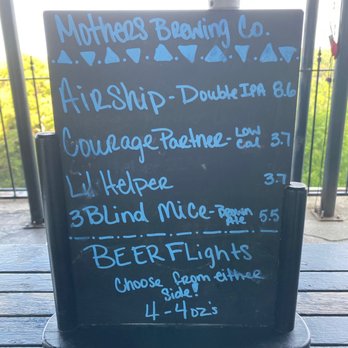 Mothers Brewing Co.
Airship - Double IPA 8.6
Courage Partner - Low Cal 3.7
Lil Helper 3.7
3 Blind Mice - Brown Ale 5.5
BEER Flights
Choose from either
side!
4 - 4oz's